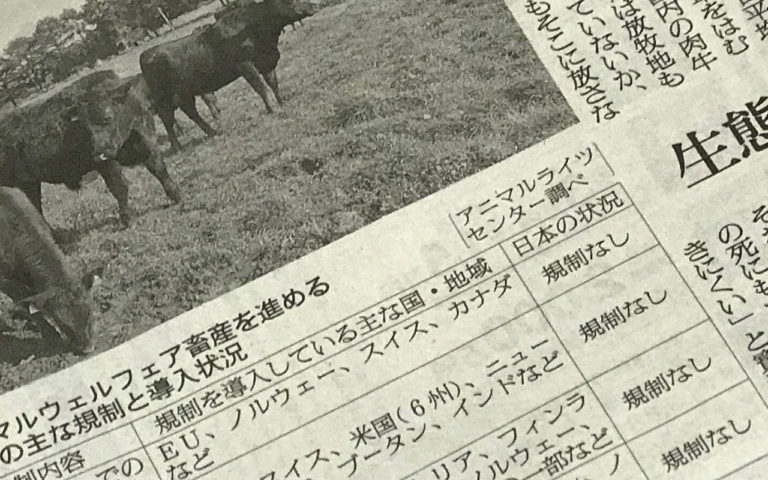 立平均
をはむ
内の肉牛
は放牧地も
ていないが、
もそこに放さな
生態
その
の死にも、
きにくい」と
アニマルライツ
センター調べ
マルウェルフェア畜産を進める
の主な規制と導入状況
制内容
規制を導入している主な国・地域
日本の状況
での
EU、ノルウェー、スイス、カナダ
など
規制なし
スイス、米国(6州)、ニュー
ブータン、インドなど
規制なし
リア、フィンラ
ノルウェー、
部など
規制なし
規制なし